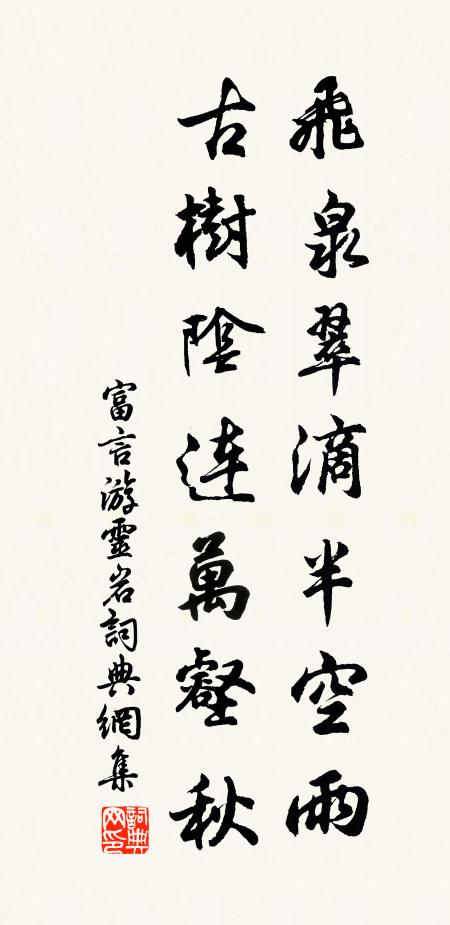 飛泉翠滴半空雨
古樹陰連萬壑秋
富言游靈岩詞典網集
詞典網印